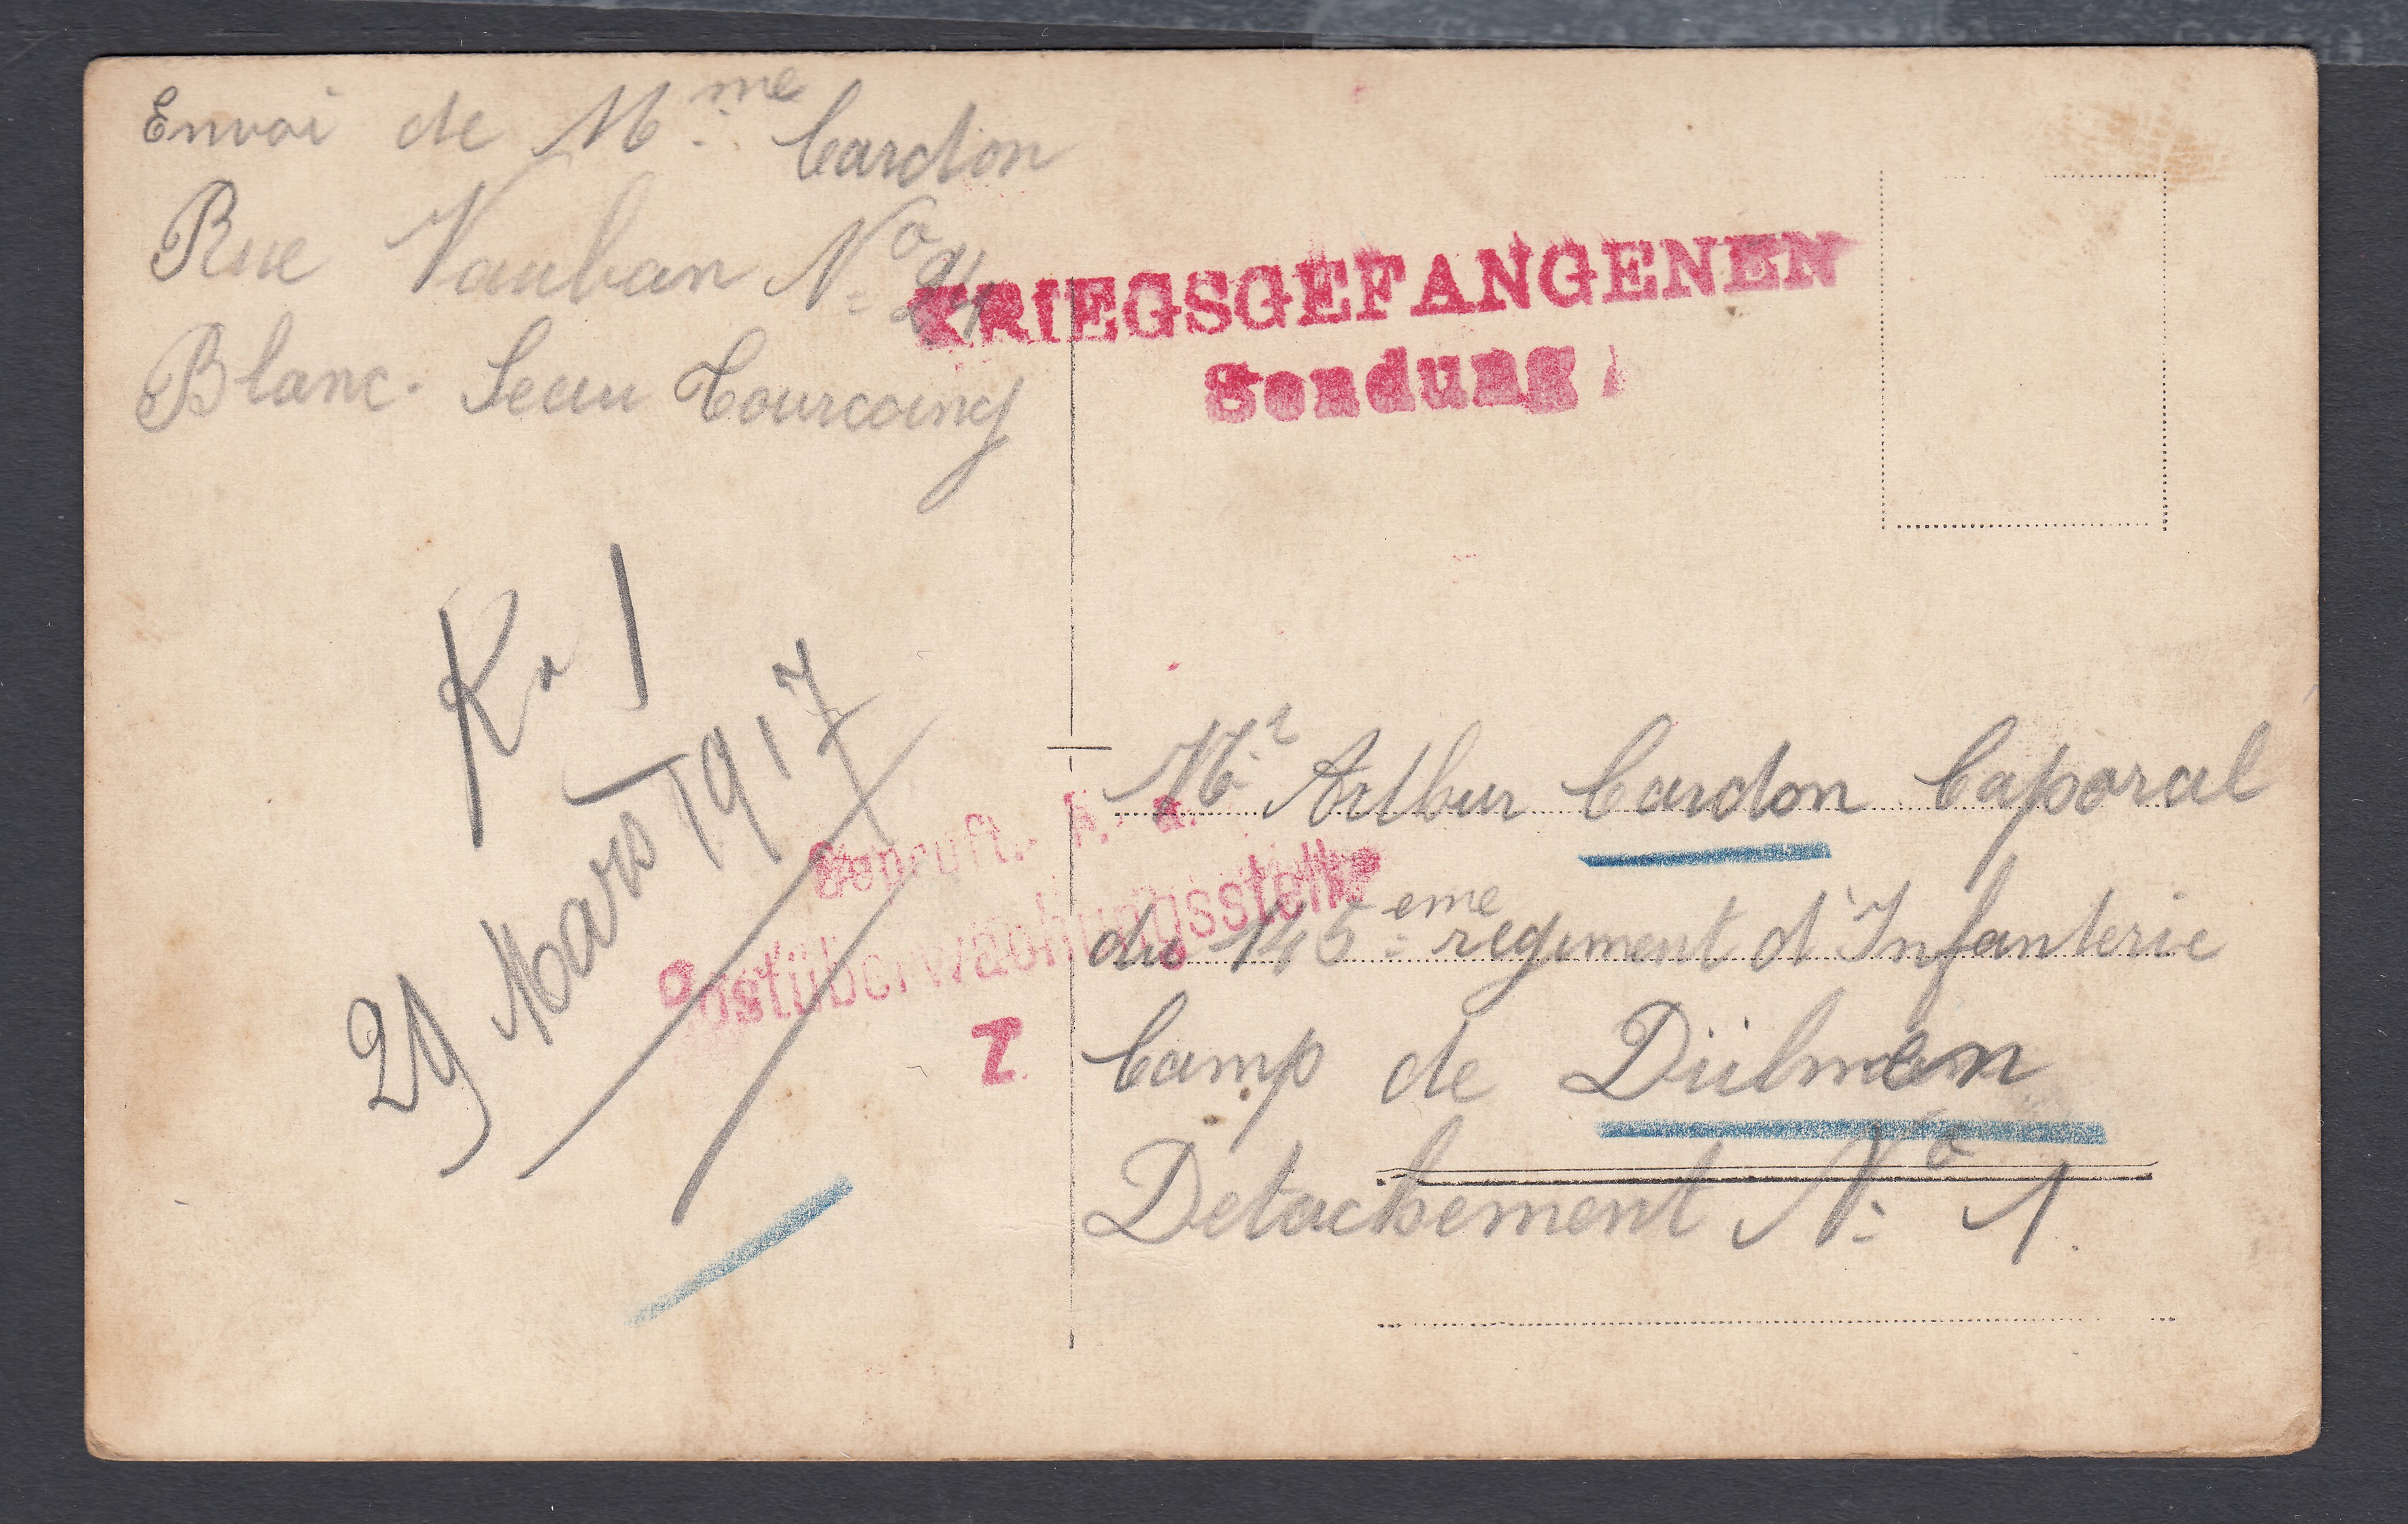 Envoi de Mme Cardon
Rue Vauban No 24
Blanc-Seau Tourcoing
KRIEGSGEFANGENEN
Sendung
K. 1
29 Mars 1917
Geprüft. F. a.
Postüberwachungsstelle
Z
Mr Arthur Cardon Caporal
du 145eme regiment d'Infanterie
Camp de Dülmen
Detachement No 1.